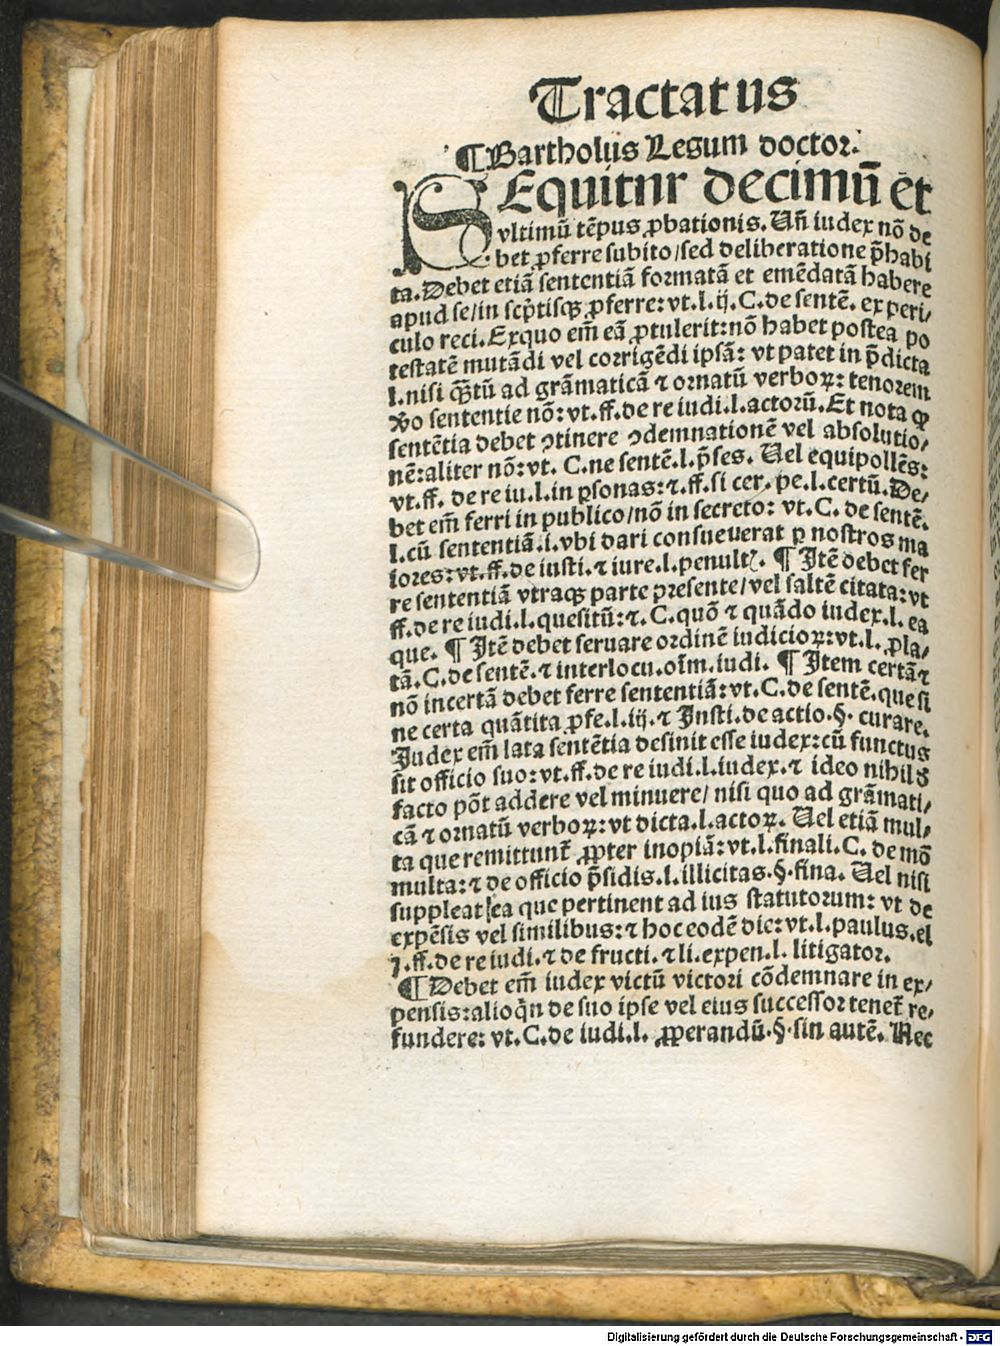 Tractatus
¶ Bartholus Legum doctor.
SEquitnr decimū et
vltimū tēpus ꝓbationis. Uñ iudex nō de
bet ꝓferre subito/sed deliberatione p̄habi
ta. Debet etiā sententiā formatā et emēdatā habere
apud se/in scp̄tisqꝫ ꝓferre: vt.l.ij.C.de sentē. ex peri/
culo reci. Exquo em̄ eā ꝓtulerit: nō habet postea po
testatē mutādi vel corrigēdi ipsā: vt patet in p̄dicta
l.nisi qᷓꝫtū ad grāmaticā ⁊ ornatū verboꝝ: tenorem
ꝟo sententie nō: vt.ff.de re iudi.l.actorū. Et nota ꝙ
sentētia debet ↄtinere ↄdemnationē vel absolutio/
nē: aliter nō: vt. C.ne sentē.l.p̄ses. Uel equipollēs:
vt.ff. de re iu.l.in ꝑsonas: ⁊.ff.si cer. pe.l.certū. De/
bet em̄ ferri in publico/nō in secreto: vt.C. de sentē.
l.cū sententiā.i.vbi dari consueuerat ꝑ nostros ma
iores: vt.ff.de iusti.⁊ iure.l.penulṫ. ¶ Itē debet fer
re sententiā vtraqꝫ parte presente/vel saltē citata: vt
ff.de re iudi.l.quesitū: ⁊.C.quō ⁊ quādo iudex.l. ea
que. ¶ Itē debet seruare ordinē iudicioꝝ: vt.l. ꝓla/
tā.C.de sentē.⁊ interlocu.oīm.iudi. ¶ Item certā ⁊
nō incertā debet ferre sententiā: vt.C.de sentē.que si
ne certa quātita ꝓfe.l.iij.⁊ Insti.de actio.§. curare.
Iudex em̄ lata sentētia desinit esse iudex: cū functus
sit officio suo: vt.ff.de re iudi.l.iudex.⁊ ideo nihil d̕
facto pōt addere vel minuere/ nisi quo ad grāmati/
cā ⁊ ornatū verboꝝ: vt dicta.l.actoꝝ. Uel etiā mul/
ta que remittunt̄ ꝓpter inopiā: vt.l.finali.C. de mō
multa: ⁊ de officio p̄sidis.l.illicitas.§.fina. Uel nisi
suppleat ea que pertinent ad ius statutorum: vt de
expēsis vel similibus: ⁊ hoc eodē dic: vt.l.paulus.el
j.ff.de re iudi.⁊ de fructi.⁊ li.expen.l. litigator.
¶ Debet em̄ iudex victū victori cōdemnare in ex/
pensis: alioq̄n de suo ipse vel eius successor tenet̄ re/
fundere: vt.C.de iudi.l. ꝓperandū.§.sin autē. Nec
Digitalisierung gefördert durch die Deutsche Forschungsgemeinschaft - DFG